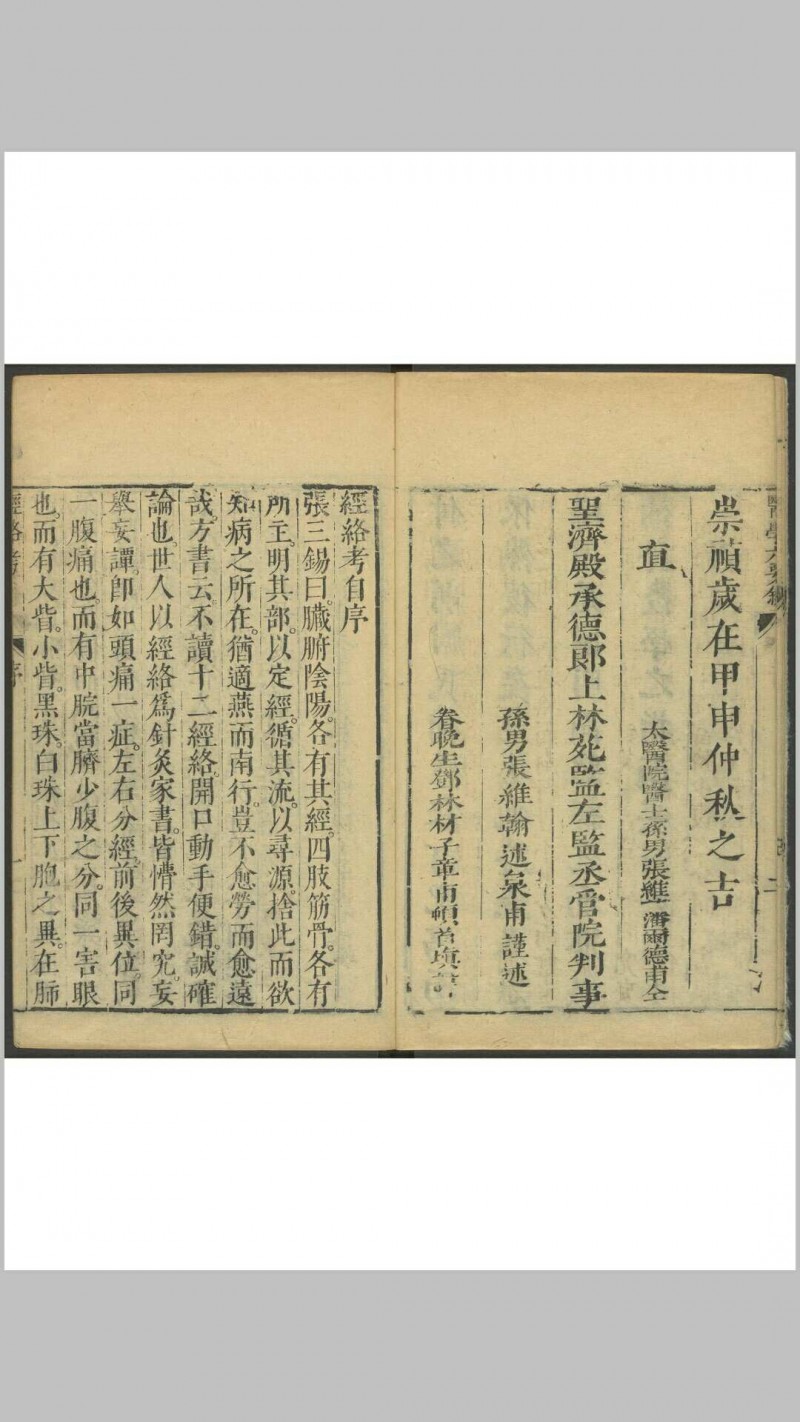 崇禎歲在甲申仲秋之吉
直
太醫院醫士孫男張維藩爾德甫仝
聖濟殿承德郎上林苑監左監丞管院判事
孫男張維翰述泉甫謹述
眷晚生鄧林材子章甫頓首
經絡考自序
張三錫曰。臟腑陰陽。各有其經。四肢筋骨。各有
所主。明其部。以定經。循其流。以尋源。捨此而欲
知病之所在。猶適燕而南行。豈不愈勞而愈遠
哉。方書云。不讀十二經絡。開口動手便錯。誠確
論也。世人以經絡爲針灸家書。皆懵然罔究。妄
舉妄譚。卽如頭痛一症。左右分經。前後異位。同
一腹痛也。而有中脘當臍少腹之分。同一害眼
也。而有大眥。小眥。黑珠。白珠上下胞之異。在肺
經絡考 序